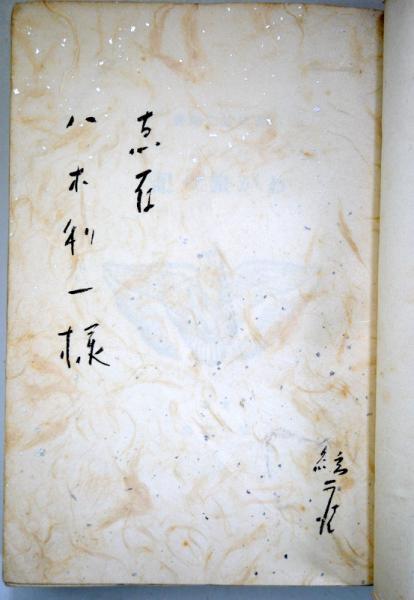 恵存
八木利一様
絃二郎